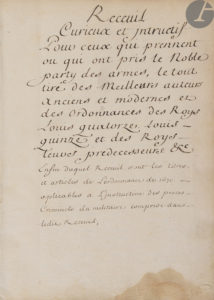 Receuil
Curieux et intructif
Pour ceux qui prennent
ou qui ont pris le Noble
party des armes, le tout
tiré des Meilleurs auteurs
anciens et modernes et
des Ordonnances des Roys
Louis quatorze, Louis
quinze et des Roys
leurs predecesseurs &c.
Enfin duquel Receuil sont les titres
et articles de L'ordonnance de 1670
applicables a L'instruction des procès
Criminels du militaire compris dans
ledit Receuil